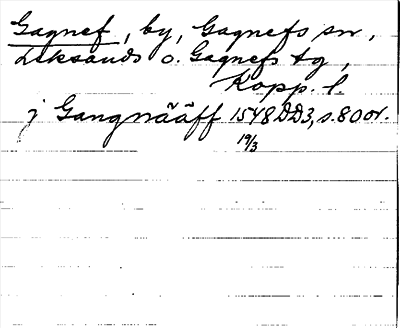 Gagnef, by, Gagnefs sn,
Leksands o. Gagnefs tg,
Kopp. l.
j Gangnääff 1548 DD3, s. 80 or.
19/3